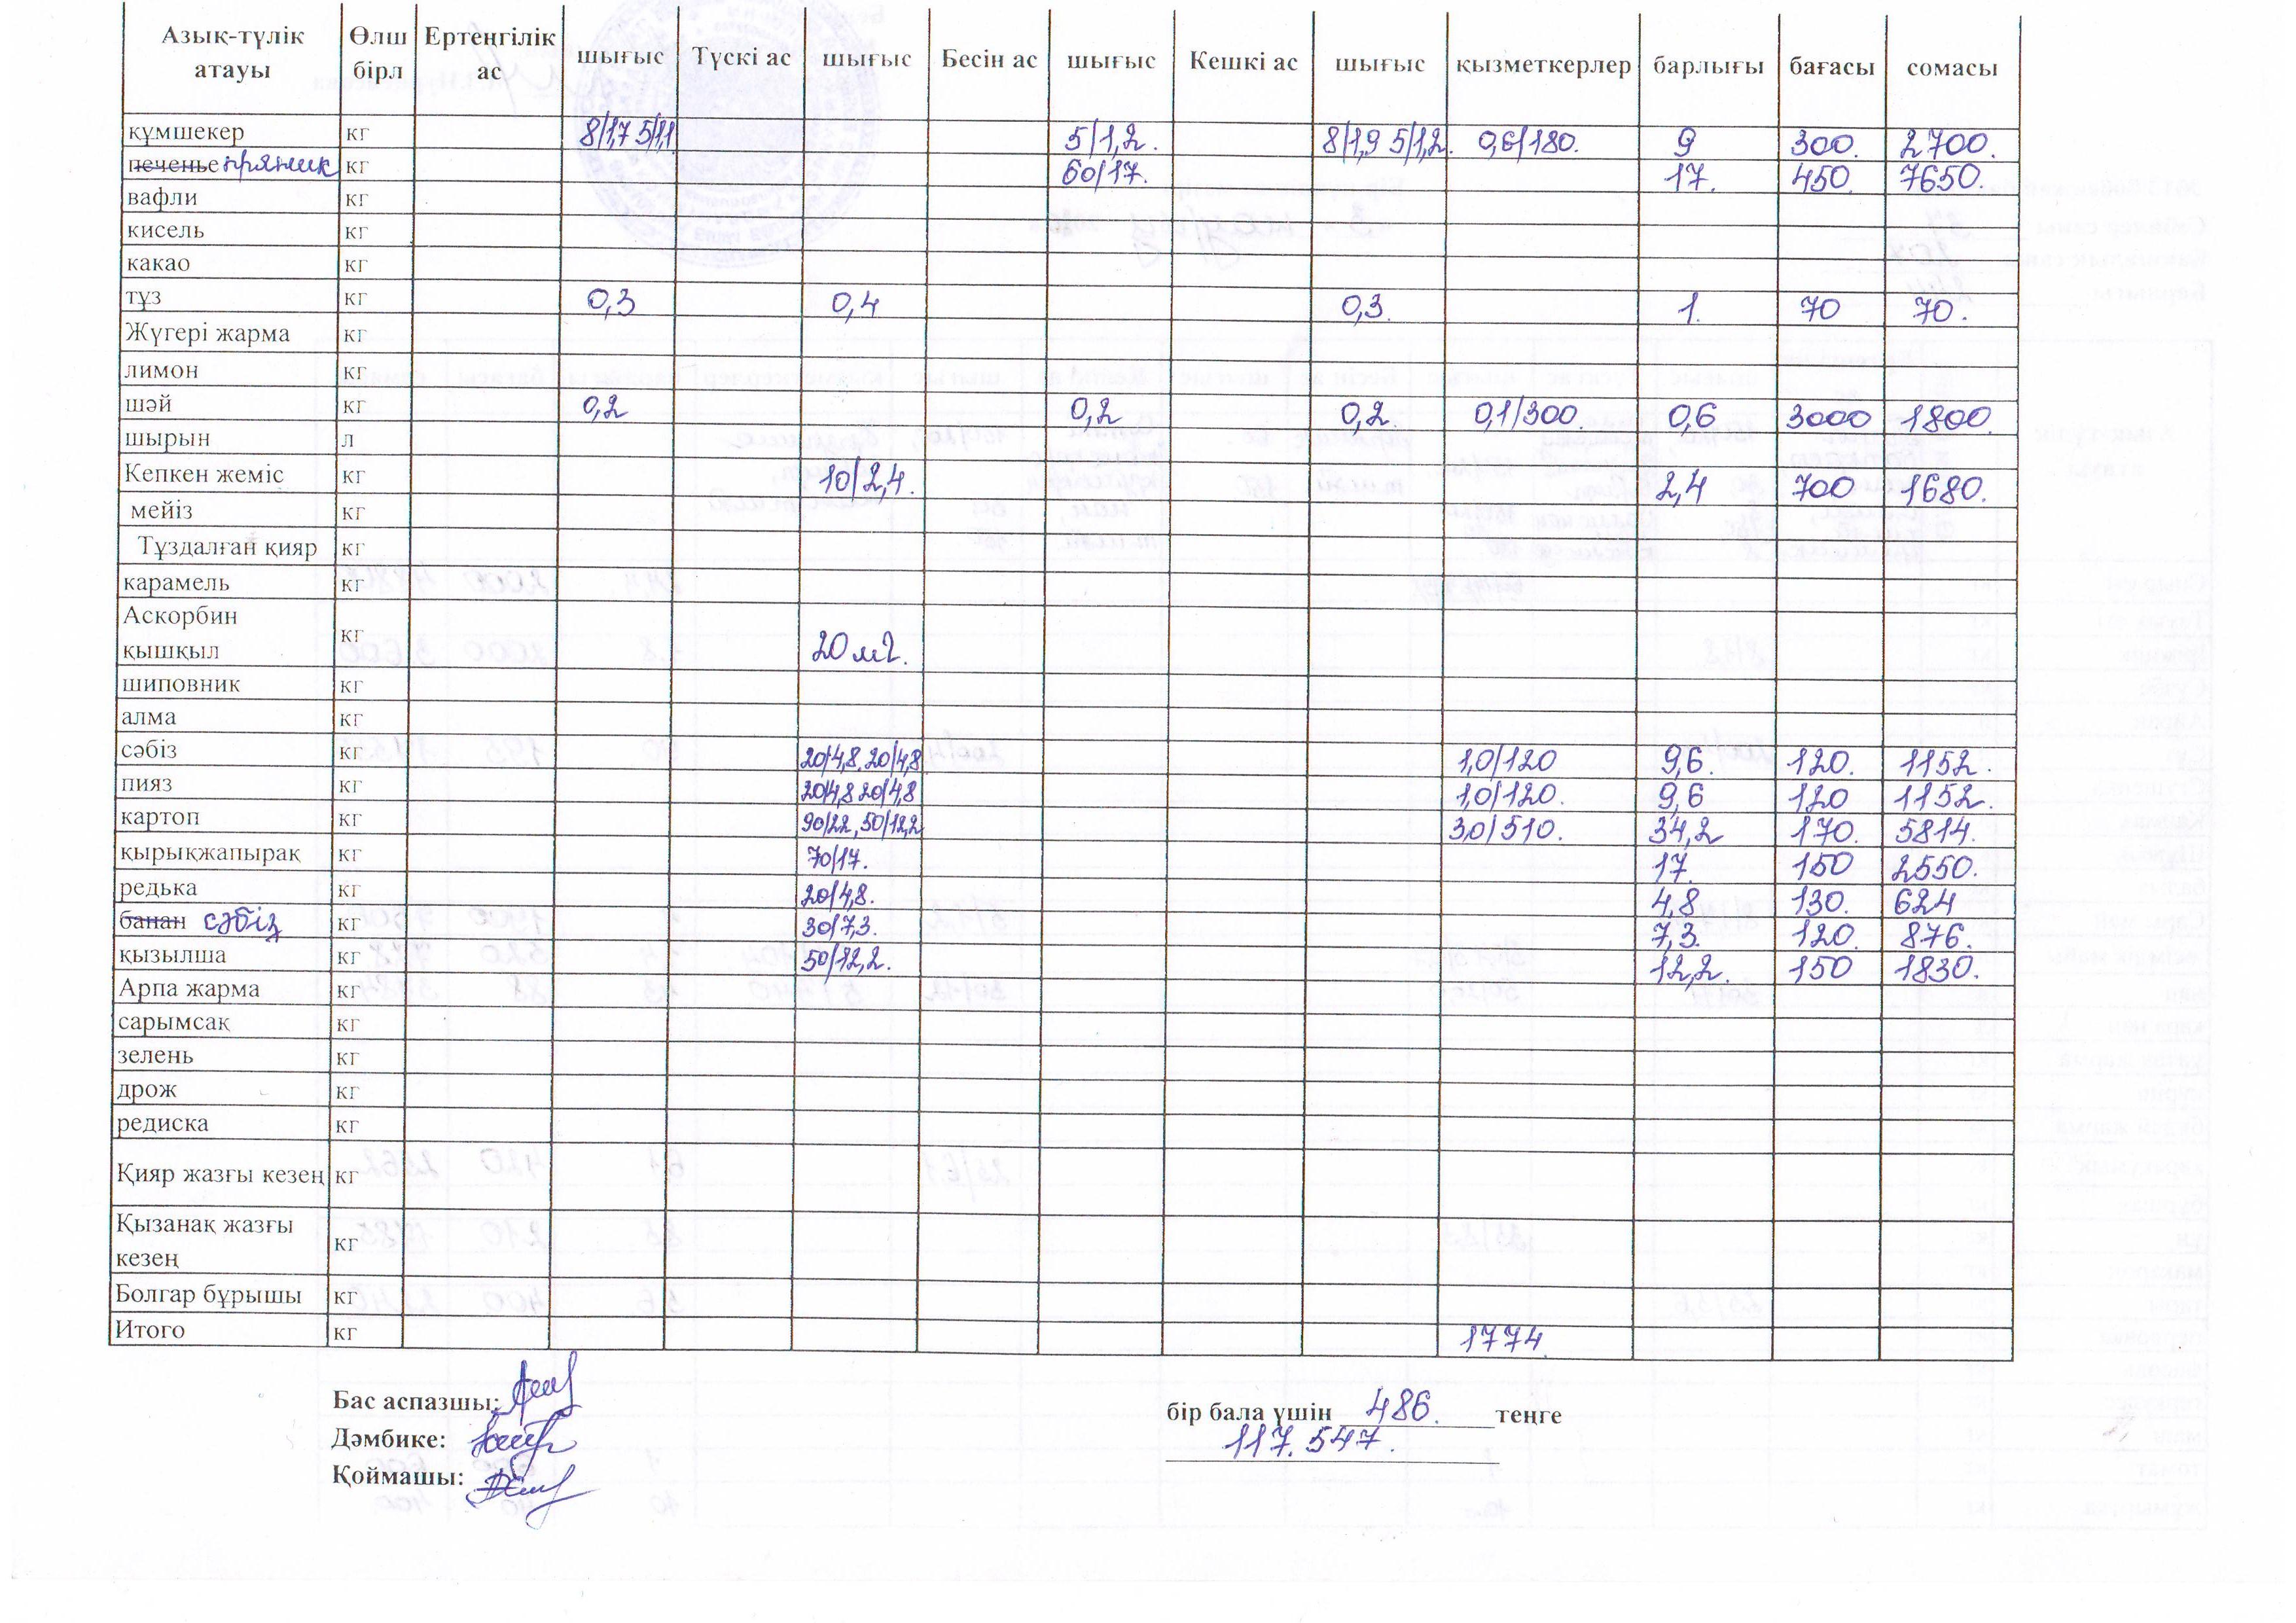 Азық-түлік атауы Өлш бірл Ертеңгілік ас шығыс Түскі ас шығыс Бесін ас шығыс Кешкі ас шығыс қызметкерлер барлығы бағасы сомасы
құмшекер кг 8/1,7 5/1,1 5/1,2. 8/1,9 5/1,2. 0,6/180. 9 300. 2700.
печенье пряник кг 60/17. 17. 450. 7650.
вафли кг
кисель кг
какао кг
тұз кг 0,3 0,4 0,3. 1. 70 70.
Жүгері жарма кг
лимон кг
шәй кг 0,2 0,2 0,2 0,1/300. 0,6 3000 1800
шырын л
Кепкен жеміс кг 10/2,4. 2,4 700 1680.
мейіз кг
Тұздалған қияр кг
карамель кг
Аскорбин қышқыл кг 20 мг.
шиповник кг
алма кг
сәбіз кг 20/4,8. 20/4,8 1,0/120 9,6. 120. 1152.
пияз кг 20/4,8 20/4,8 1,0/120. 9,6 120 1152.
картоп кг 90/22, 50/12,2 3,0/510. 34,2 170. 5814.
қырықжапырақ кг 70/17. 17. 150 2550.
редька кг 20/4,8. 4,8 130. 624
банан сәбіз кг 30/7,3. 7,3. 120. 876.
қызылша кг 50/12,2. 12,2. 150 1830.
Арпа жарма кг
сарымсақ кг
зелень кг
дрож кг
редиска кг
Қияр жазғы кезең кг
Қызанақ жазғы кезең кг
Болгар бұрышы кг
Итого кг 1774.
Бас аспазшы:
бір бала үшін 486. теңге
Дәмбике:
117.547.
Қоймашы: